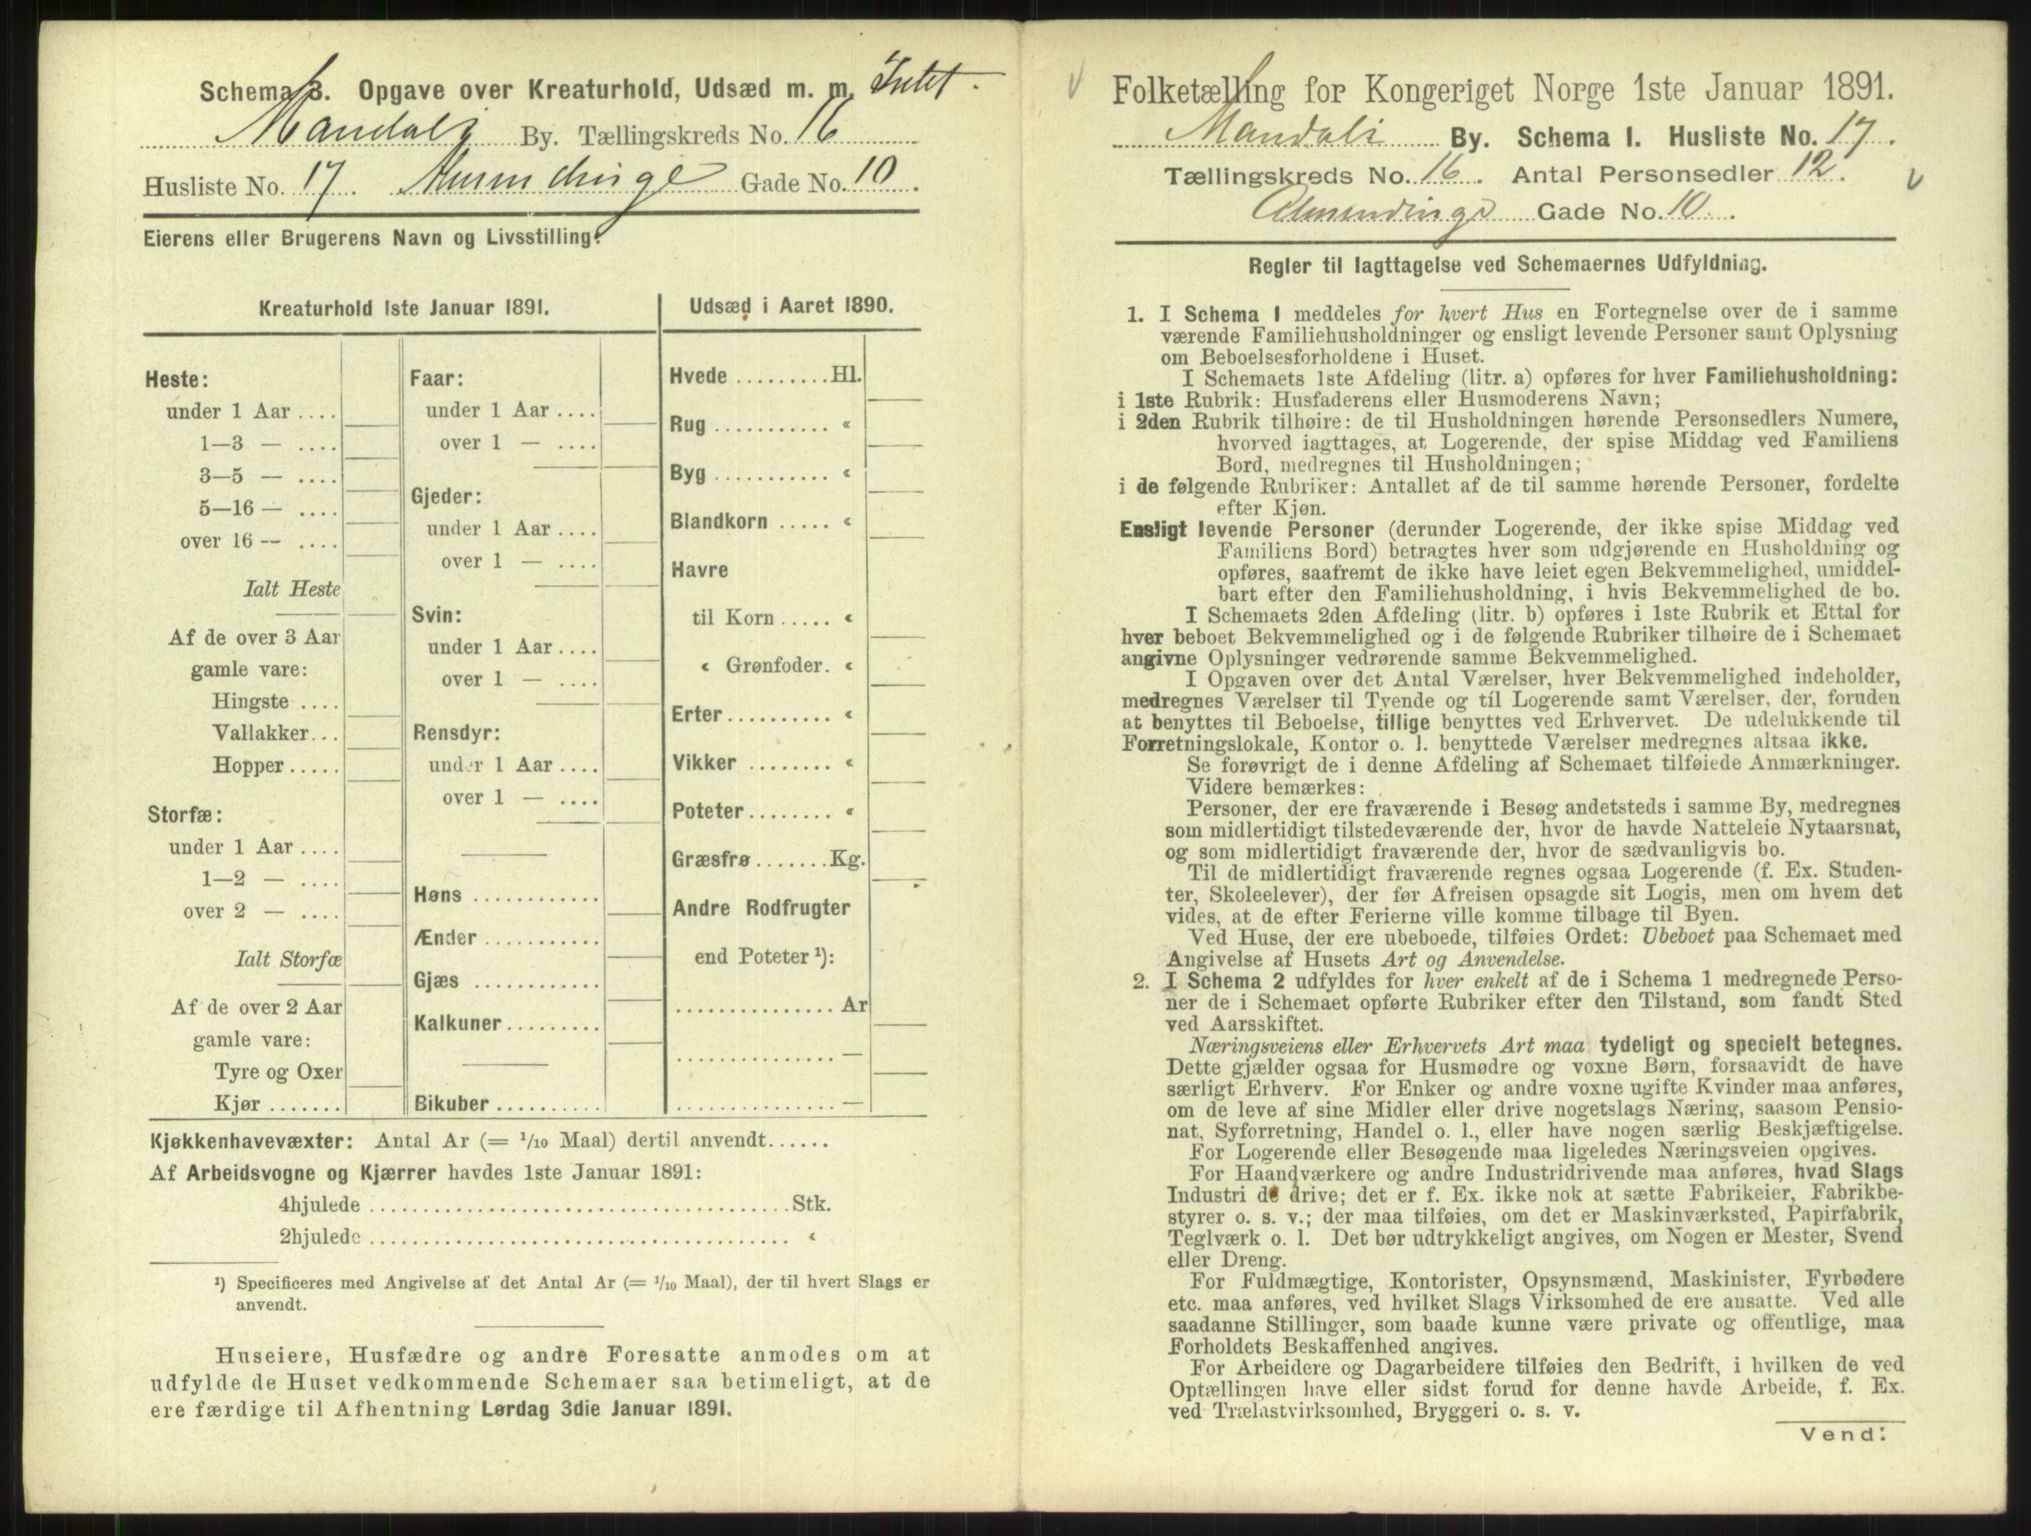 Schema 3. Opgave over Kreaturhold, Udsæd m. m. Intet.
Mandals By. Tællingskreds No. 16
Husliste No. 17. Almendinge Gade No. 10.
Eierens eller Brugerens Navn og Livsstilling:
Kreaturhold 1ste Januar 1891.
Heste:
under 1 Aar ....
1—3 — ....
3—5 — ....
5—16 — ....
over 16 — ....
Ialt Heste
Af de over 3 Aar
gamle vare:
Hingste ....
Vallakker...
Hopper.....
Storfæ:
under 1 Aar ....
1—2 — ....
over 2 — ....
Ialt Storfæ
Af de over 2 Aar
gamle vare:
Tyre og Oxer
Kjør .......
Faar:
under 1 Aar ....
over 1 — ....
Gjeder:
under 1 Aar ....
over 1 — ....
Svin:
under 1 Aar ....
over 1 — ....
Rensdyr:
under 1 Aar ....
over 1 — ....
Høns ............
Ænder ...........
Gjæs ............
Kalkuner.........
Bikuber..........
Udsæd i Aaret 1890.
Hvede .........Hl.
Rug ........... «
Byg ........... «
Blandkorn ..... «
Havre
til Korn ..... «
« Grønfoder. «
Erter.......... «
Vikker ........ «
Poteter........ «
Græsfrø .......Kg.
Andre Rodfrugter
end Poteter ¹):
............... Ar
............... —
............... —
Kjøkkenhavevæxter: Antal Ar (= 1/10 Maal) dertil anvendt......
Af Arbeidsvogne og Kjærrer havdes 1ste Januar 1891:
4hjulede ....................................Stk.
2hjulede .................................... «
¹) Specificeres med Angivelse af det Antal Ar (= 1/10 Maal), der til hvert Slags er
anvendt.
Huseiere, Husfædre og andre Foresatte anmodes om at
udfylde de Huset vedkommende Schemaer saa betimeligt, at de
ere færdige til Afhentning Lørdag 3die Januar 1891.
Folketælling for Kongeriget Norge 1ste Januar 1891.
Mandals By. Schema I. Husliste No. 17.
Tællingskreds No. 16. Antal Personsedler 12.
Almendinge Gade No. 10.
Regler til Iagttagelse ved Schemaernes Udfyldning.
1. I Schema I meddeles for hvert Hus en Fortegnelse over de i samme
værende Familiehusholdninger og ensligt levende Personer samt Oplysning
om Beboelsesforholdene i Huset.
I Schemaets 1ste Afdeling (litr. a) opføres for hver Familiehusholdning:
i 1ste Rubrik: Husfaderens eller Husmoderens Navn;
i 2den Rubrik tilhøire: de til Husholdningen hørende Personsedlers Numere,
hvorved iagttages, at Logerende, der spise Middag ved Familiens
Bord, medregnes til Husholdningen;
i de følgende Rubriker: Antallet af de til samme hørende Personer, fordelte
efter Kjøn.
Ensligt levende Personer (derunder Logerende, der ikke spise Middag ved
Familiens Bord) betragtes hver som udgjørende en Husholdning og
opføres, saafremt de ikke have leiet egen Bekvemmelighed, umiddel-
bart efter den Familiehusholdning, i hvis Bekvemmelighed de bo.
I Schemaets 2den Afdeling (litr. b) opføres i 1ste Rubrik et Ettal for
hver beboet Bekvemmelighed og i de følgende Rubriker tilhøire de i Schemaet
angivne Oplysninger vedrørende samme Bekvemmelighed.
I Opgaven over det Antal Værelser, hver Bekvemmelighed indeholder,
medregnes Værelser til Tyende og til Logerende samt Værelser, der, foruden
at benyttes til Beboelse, tillige benyttes ved Erhvervet. De udelukkende til
Forretningslokale, Kontor o. l. benyttede Værelser medregnes altsaa ikke.
Se forøvrigt de i denne Afdeling af Schemaet tilføiede Anmærkninger.
Videre bemærkes:
Personer, der ere fraværende i Besøg andetsteds i samme By, medregnes
som midlertidigt tilstedeværende der, hvor de havde Natteleie Nytaarsnat,
og som midlertidigt fraværende der, hvor de sædvanligvis bo.
Til de midlertidigt fraværende regnes ogsaa Logerende (f. Ex. Studen-
ter, Skoleelever), der før Afreisen opsagde sit Logis, men om hvem det
vides, at de efter Ferierne ville komme tilbage til Byen.
Ved Huse, der ere ubeboede, tilføies Ordet: Ubeboet paa Schemaet med
Angivelse af Husets Art og Anvendelse.
2. I Schema 2 udfyldes for hver enkelt af de i Schema 1 medregnede Perso-
ner de i Schemaet opførte Rubriker efter den Tilstand, som fandt Sted
ved Aarsskiftet.
Næringsveiens eller Erhvervets Art maa tydeligt og specielt betegnes.
Dette gjælder ogsaa for Husmødre og voxne Børn, forsaavidt de have
særligt Erhverv. For Enker og andre voxne ugifte Kvinder maa anføres,
om de leve af sine Midler eller drive nogetslags Næring, saasom Pensio-
nat, Syforretning, Handel o. l., eller have nogen særlig Beskjæftigelse.
For Logerende eller Besøgende maa ligeledes Næringsveien opgives.
For Haandværkere og andre Industridrivende maa anføres, hvad Slags
Industri de drive; det er f. Ex. ikke nok at sætte Fabrikeier, Fabrikbe-
styrer o. s. v.; der maa tilføies, om det er Maskinværksted, Papirfabrik,
Teglværk o. l. Det bør udtrykkeligt angives, om Nogen er Mester, Svend
eller Dreng.
For Fuldmægtige, Kontorister, Opsynsmænd, Maskinister, Fyrbødere
etc. maa anføres, ved hvilket Slags Virksomhed de ere ansatte. Ved alle
saadanne Stillinger, som baade kunne være private og offentlige, maa
Forholdets Beskaffenhed angives.
For Arbeidere og Dagarbeidere tilføies den Bedrift, i hvilken de ved
Optællingen have eller sidst forud for denne havde Arbeide, f. Ex.
ved Trælastvirksomhed, Bryggeri o. s. v.
Vend!